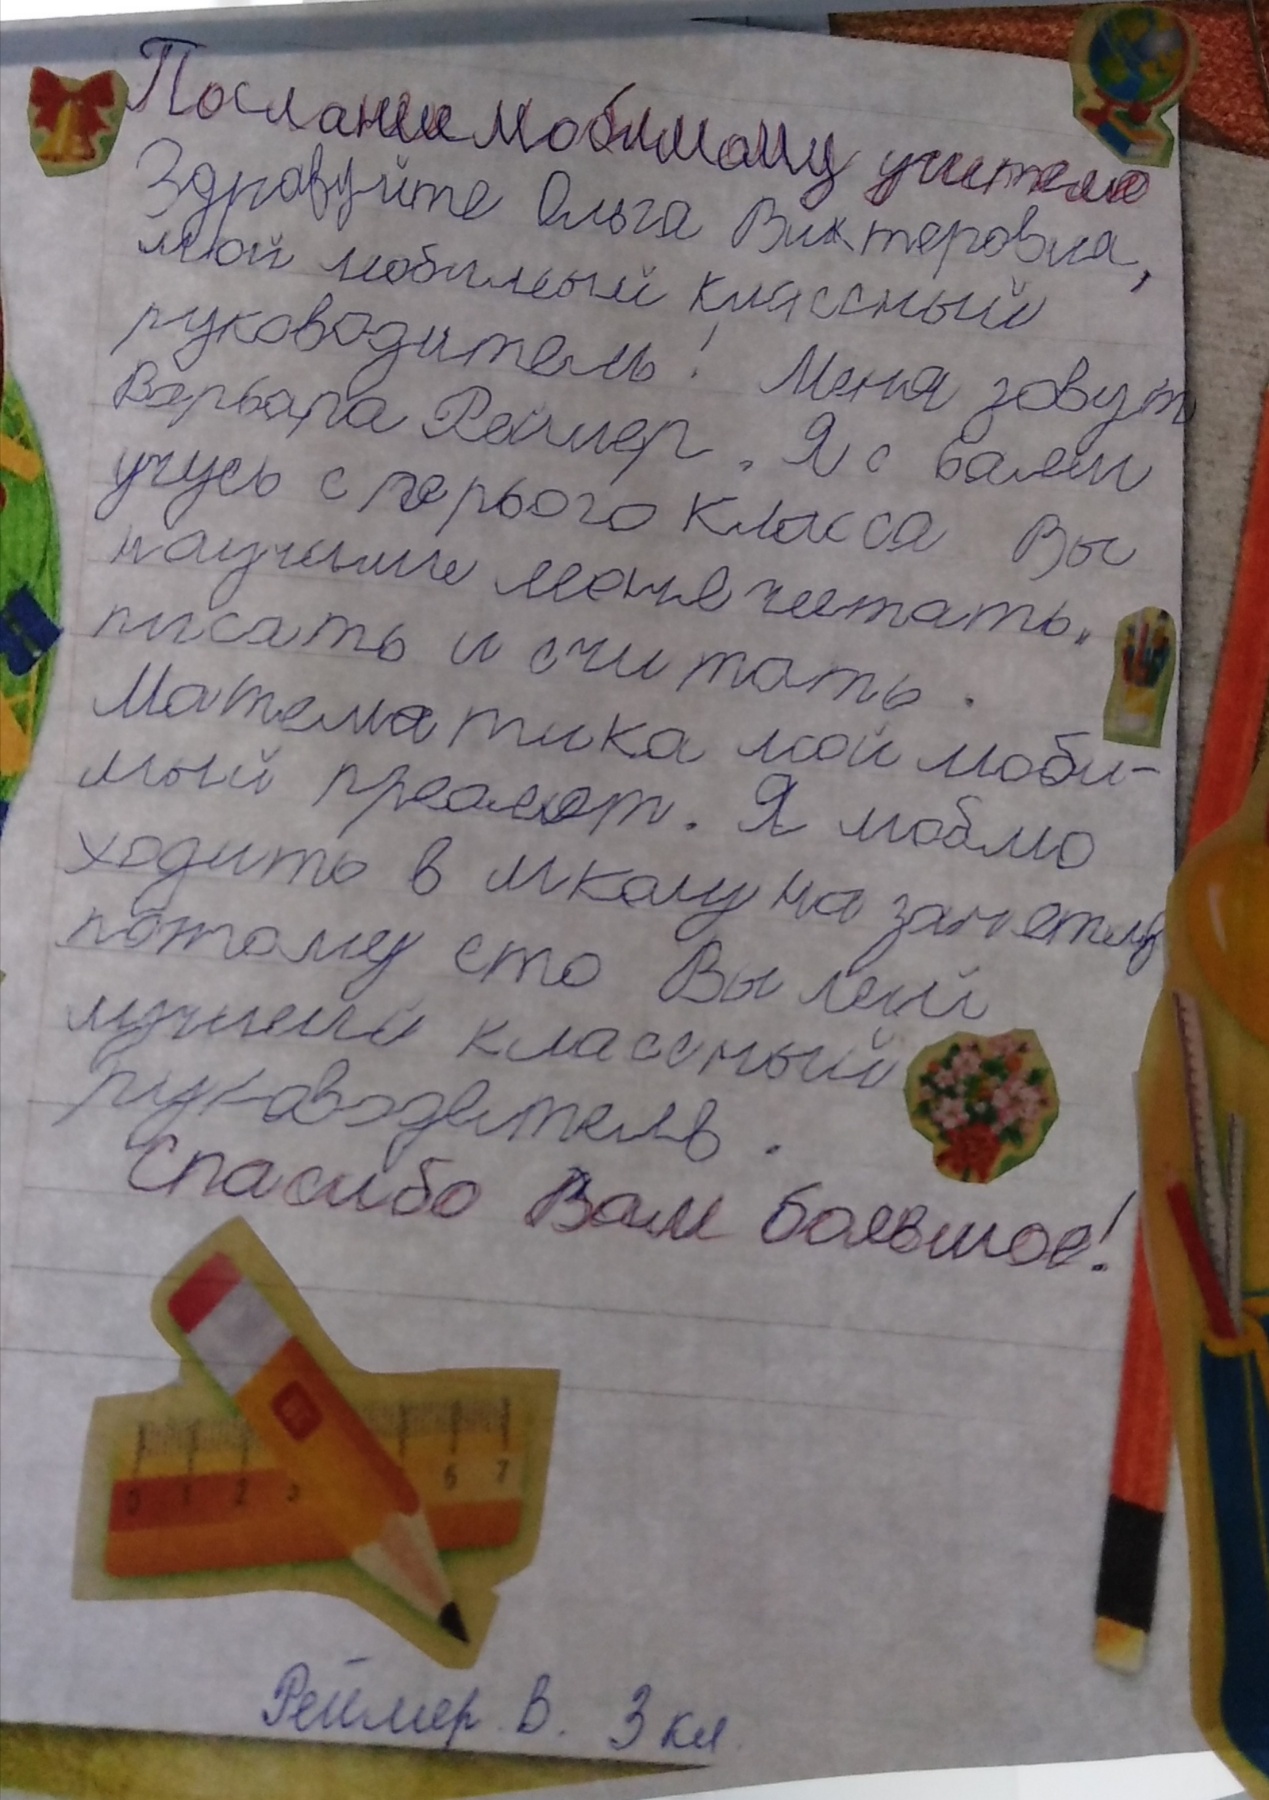 Послание любимому учителю
Здравуйте Ольга Виктеровна,
мой любимый классный
руководитель! Меня зовут
Варвара Реймер. Я с вами
учусь с первого класса Вы
научили меня читать,
писать и считать.
Математика мой люби-
мый предмет. Я люблю
ходить в школу на занятия
потому сто Вы мой
лучший классный
руководитель.
Спасибо Вам большое!
0 1 2 3 6 7
Реймер В. 3 кл.